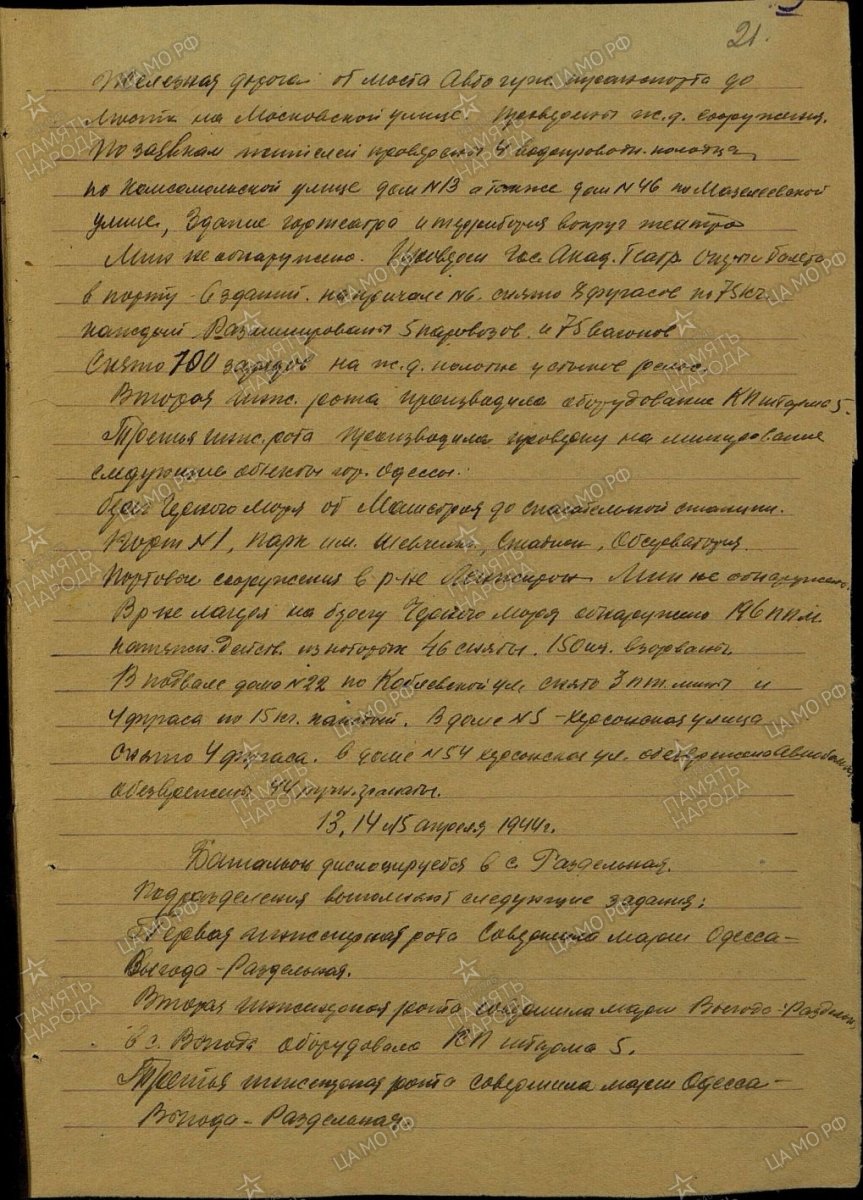 21.
Железная дорога от моста Автогуж. транспорта до
моста на Московской улице. Проверены ж.д. сооружения.
По заявкам жителей проверены 4 водопроводн. колодца
по Комсомольской улице дом N13 а также дом N46 по
улице, Здание гортеатра и территория вокруг театра
Мин не обнаружено. Проверен Гос. Акад. Театр Оперы и Балета,
в порту - 6 зданий. на причале N6. снято 8 фугасов по 75 кг.
каждый Разминированы 5 паровозов и 75 вагонов
Снято 700 зарядов на ж.д. полотне у стыков рельс.
Вторая инж. рота производила оборудование КП штарма 5.
Третья инж. рота производила проверку на минирование
следующие объекты гор. Одессы:
берег Черного Моря от до спасательной станции.
N1, парк им. Шевченко, Стадион, Обсерватория.
Портовые сооружения в р-не Мин не обнаружено.
В р-не лагеря на берегу Черного моря обнаружено 196 ППМ
натяжн. действ. из которых 46 сняты. 150 шт. взорваны.
В подвале дома N22 по Коблевской ул. снято 3 пт. мины и
4 фугаса по 15 кг. каждый. В доме N5 - херсонская улица
снято 4 фугаса. в доме N54 херсонская ул.
обезврежены 44 ручн. гранаты.
13, 14 и 15 апреля 1944 г.
Батальон дислоцируется в с. Раздельная.
Подразделения выполняют следующие задания:
Первая инженерная рота Совершила марш Одесса-
Выгода - Раздельная.
Вторая инженерная рота совершила марш Выгода - Раздельн.
в с. Выгода оборудовала КП штарма 5.
Третья инженерная рота совершила марш Одесса -
Выгода - Раздельная.
ПАМЯТЬ НАРОДА
ЦАМО.РФ